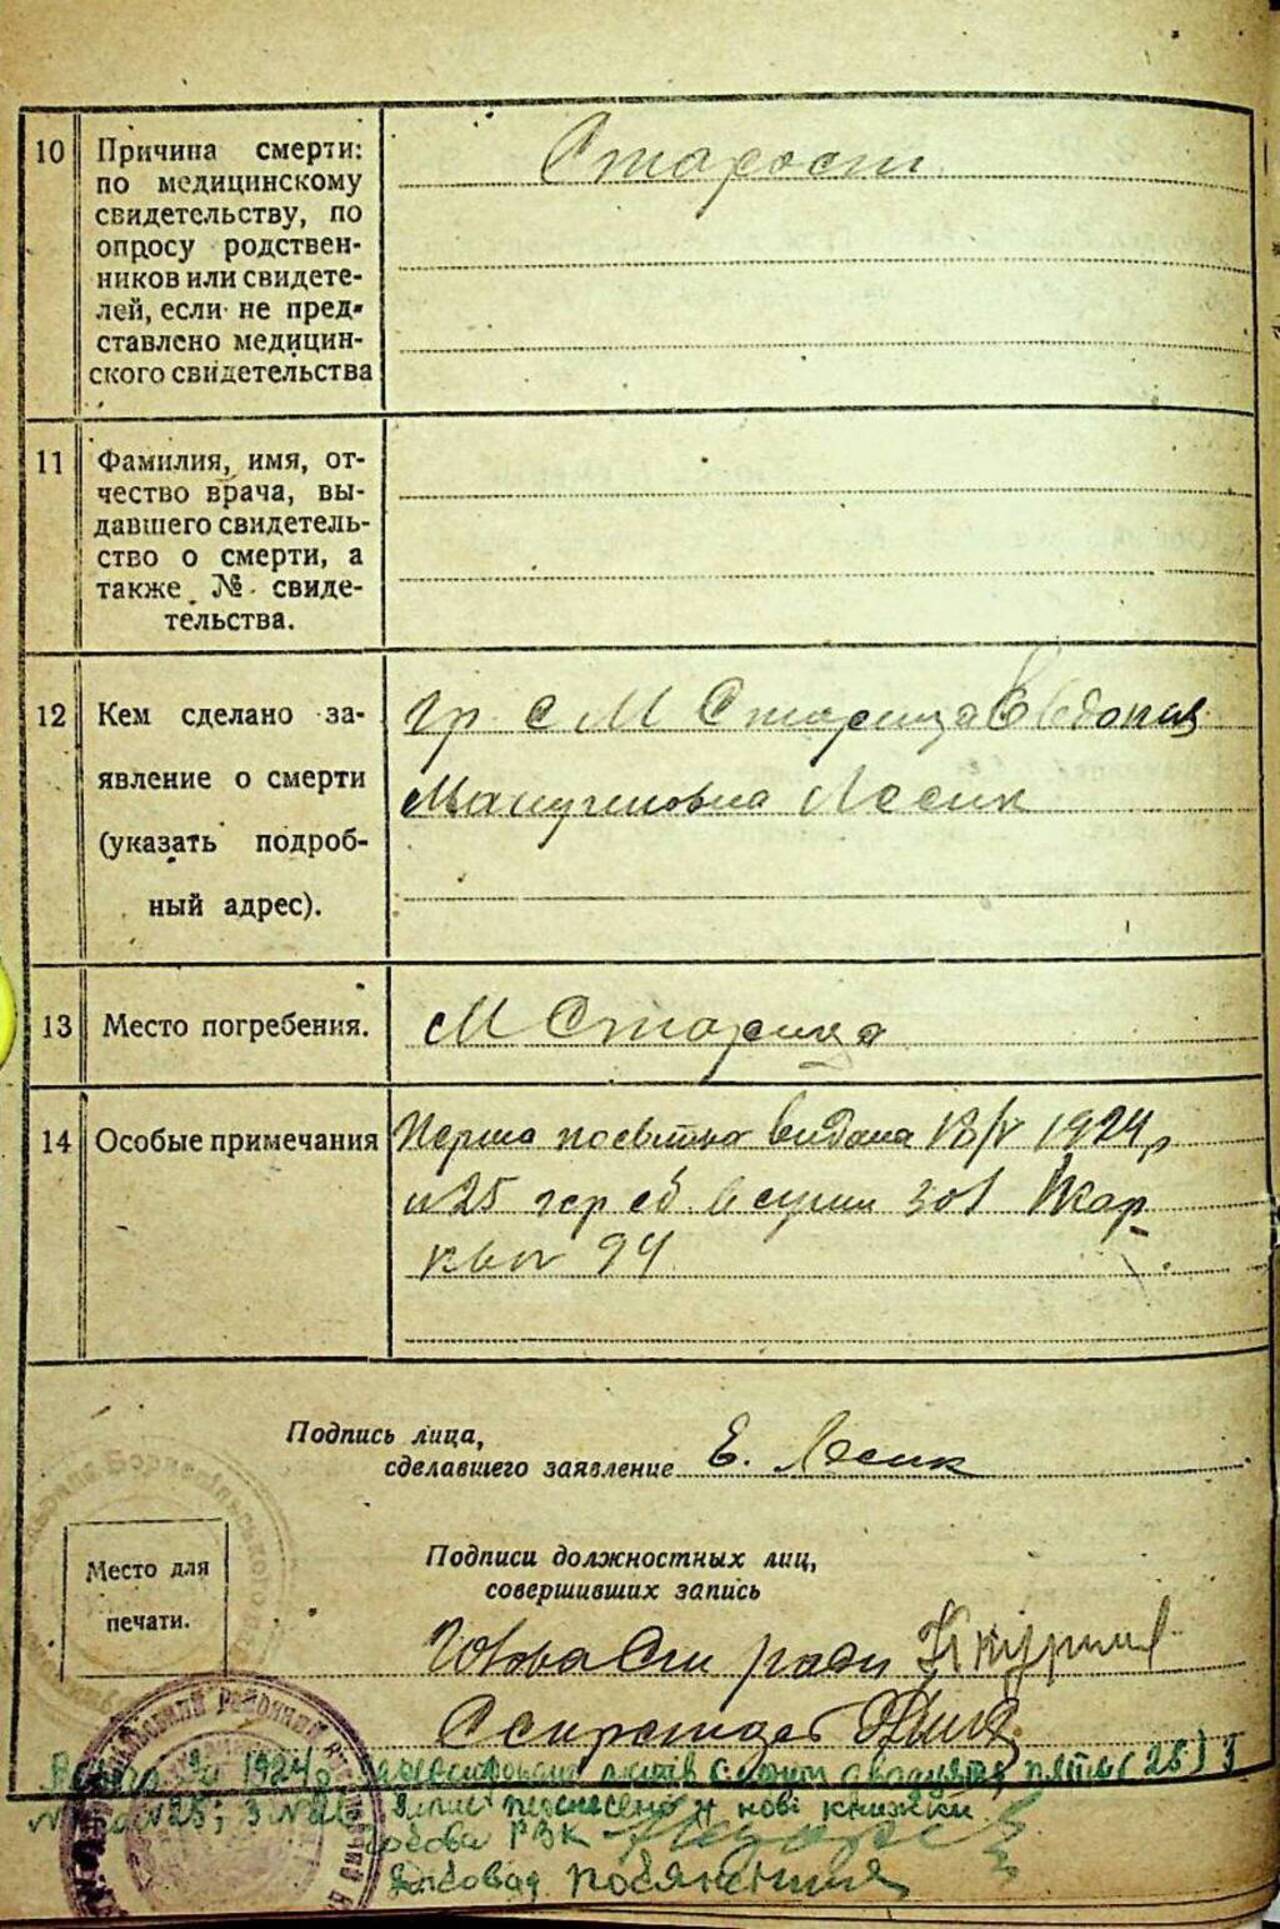 10 Причина смерти:
по медицинскому
свидетельству, по
опросу родствен-
ников или свидете-
лей, если не пред-
ставлено медицин-
ского свидетельства
Старост
11 Фамилия, имя, от-
чество врача, вы-
давшего свидетель-
ство о смерти, а
также № свиде-
тельства.
12 Кем сделано за-
явление о смерти
(указать подроб-
ный адрес).
гр с М Старица Евдокия
Лесик
13 Место погребения.
М Старица
14 Особые примечания
Перша посвідка видана 1924 р
№25 гер сб в сумі
94
Подпись лица,
сделавшего заявление Е. Лесик
Место для
печати.
Подписи должностных лиц,
совершивших запись
Голова ради
Секретарь
1924 актів двадцять пять (25) з
№25; з нові книжки
Голова РВК